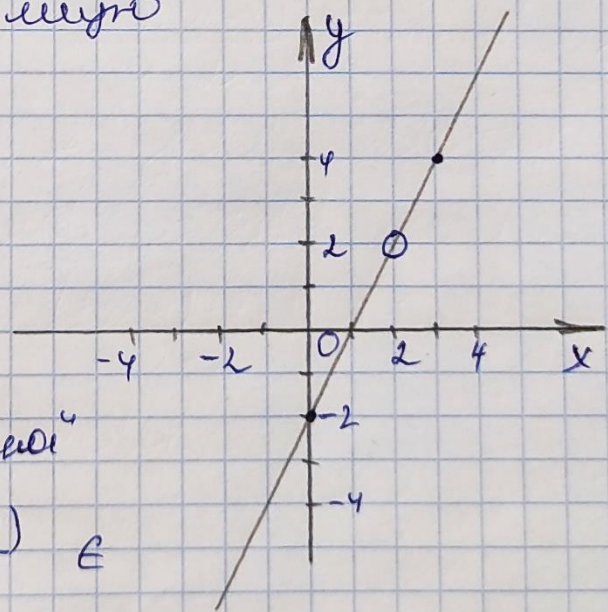 y
4
2
-4 -2 0 2 4 x
-2
-4
) є